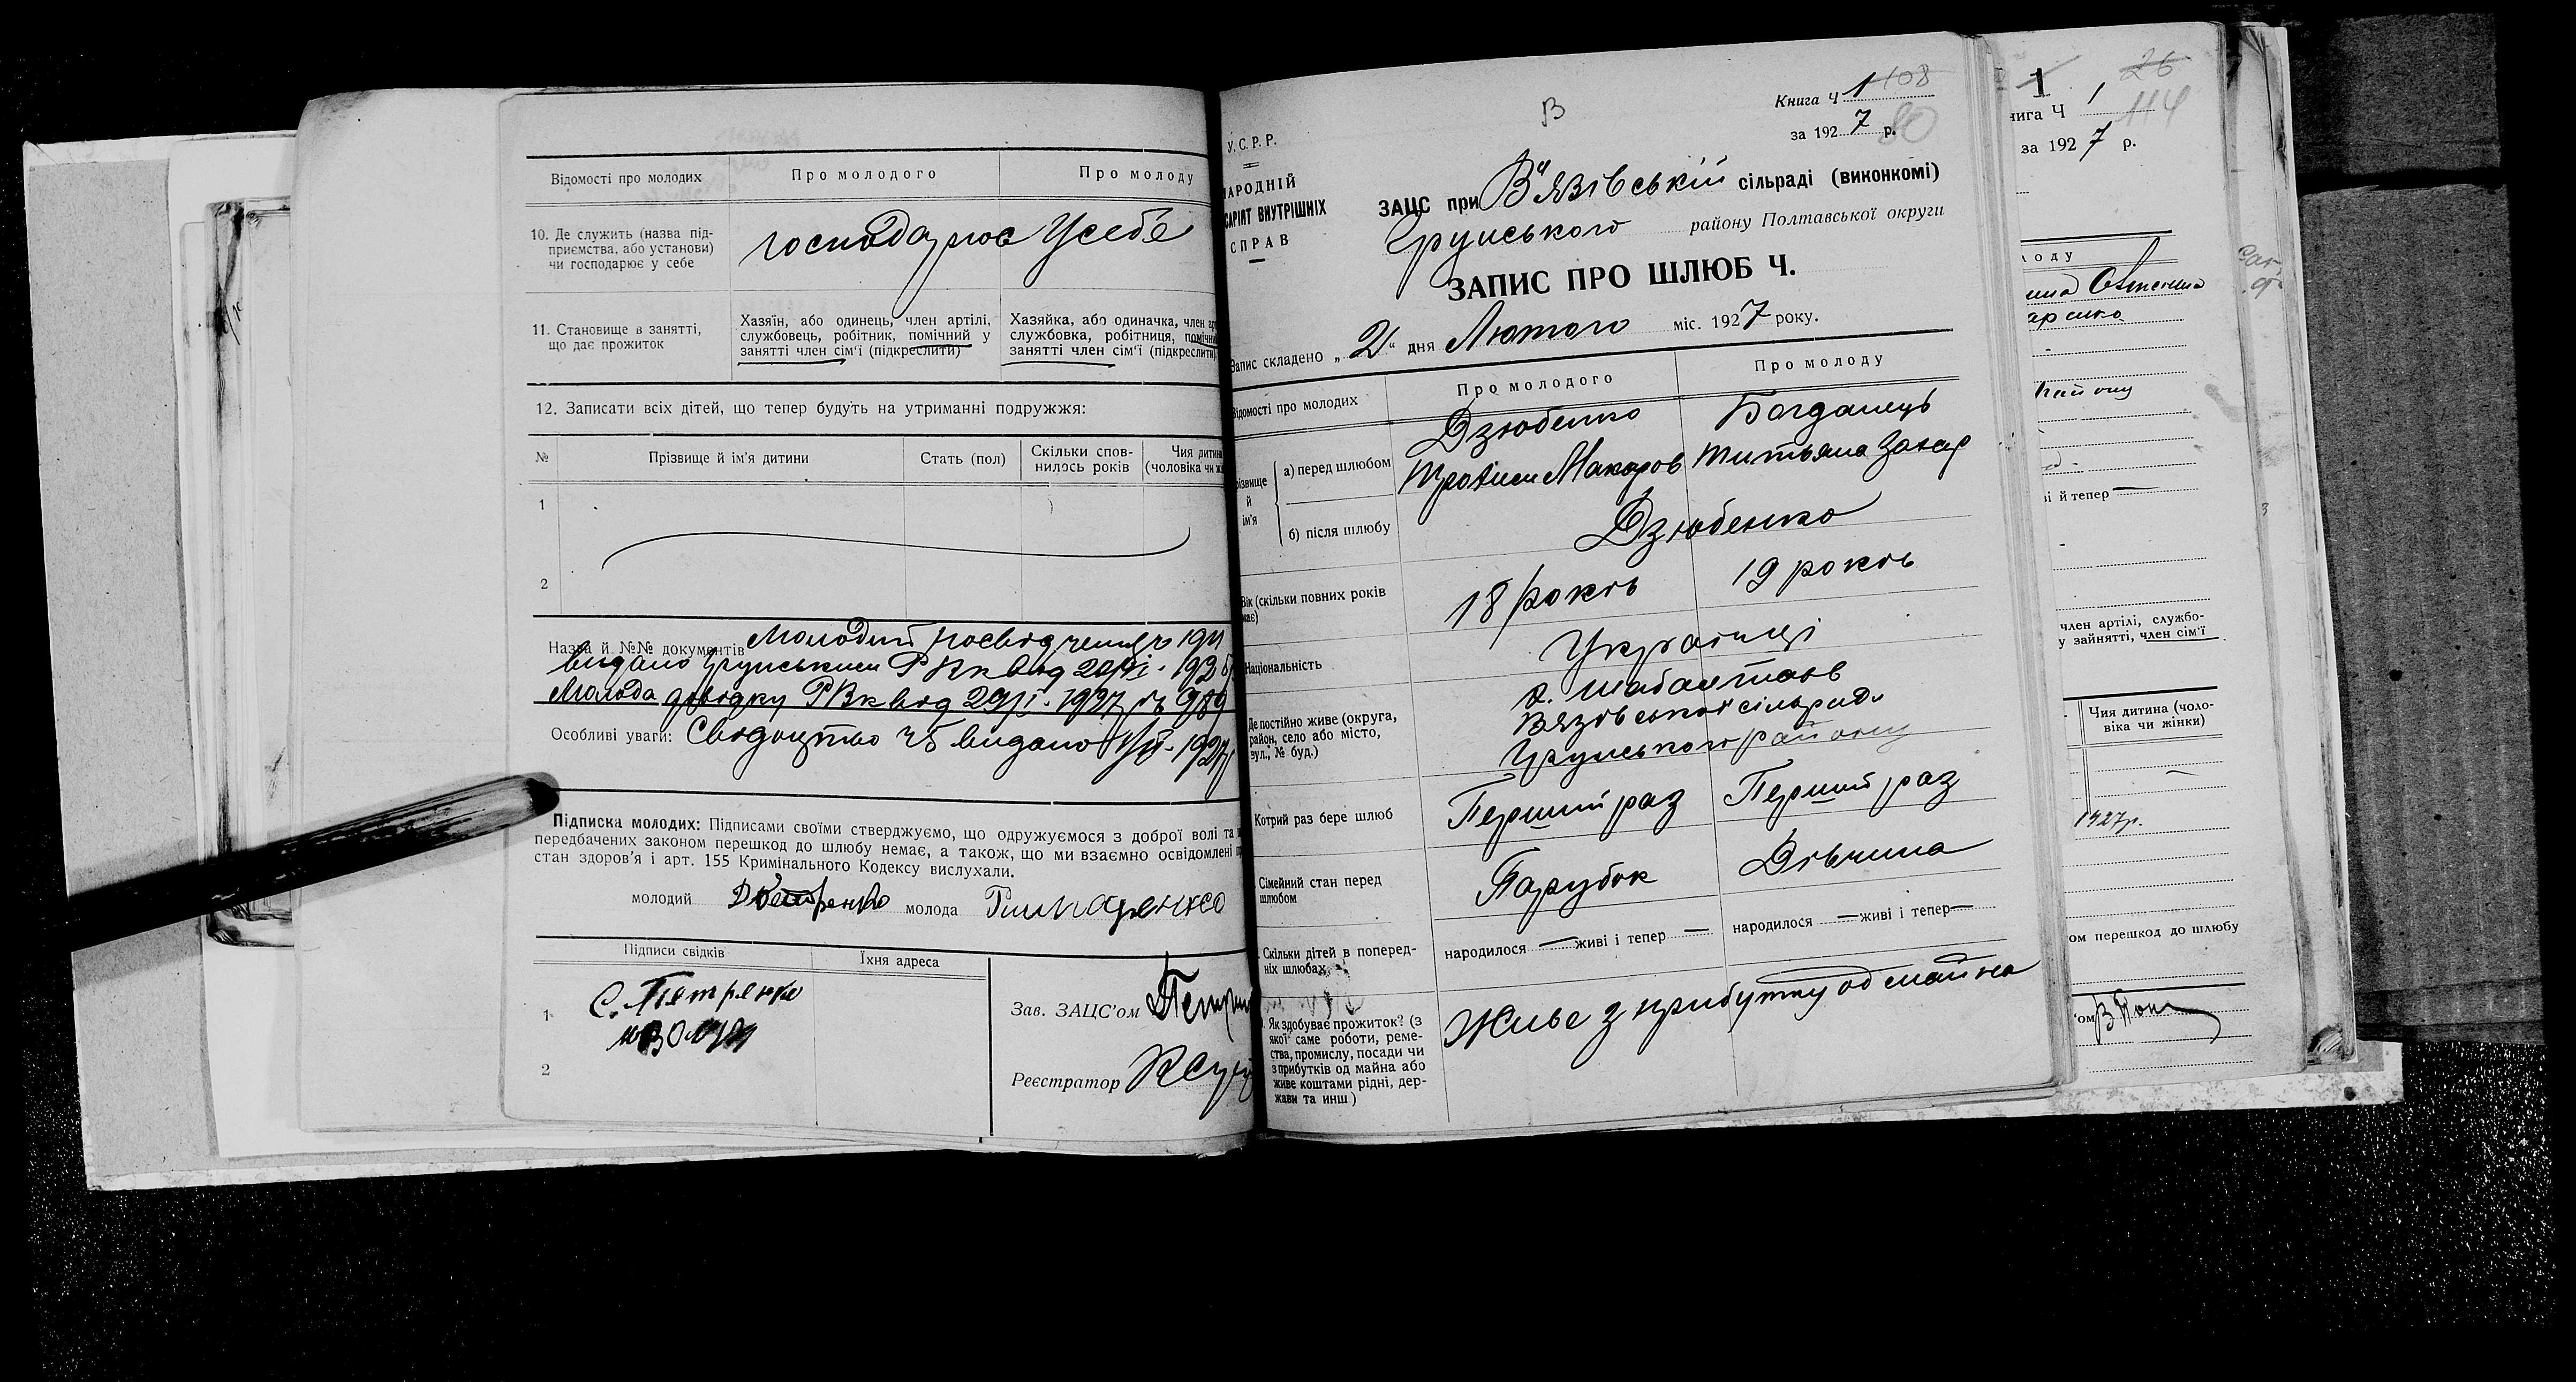 Відомості про молодих
Про молодого
Про молоду
10. Де служить (назва під-
приємства, або установи)
чи господарює у себе
господарює у себе
11. Становище в занятті,
що дає прожиток
Хазяїн, або одинець, член артілі,
службовець, робітник, помічний у
занятті член сім'ї (підкреслити)
Хазяйка, або одиначка, член
службовка, робітниця,
занятті член сім'ї (підкреслити)
12. Записати всіх дітей, що тепер будуть на утриманні подружжя:
№
Прізвище й ім'я дитини
Стать (пол)
Скільки спов-
нилось років
Чия дитина
(чоловіка чи
1
2
Назва й №№ документів Молодий
видано Грунським РВК від
Молода довідку РВК від 29/I-1927 989
Особливі уваги: Свідоцтво видано 1927
Підписка молодих: Підписами своїми стверджуємо, що одружуємося з доброї волі та
передбачених законом перешкод до шлюбу немає, а також, що ми взаємно освідомлені
стан здоров'я і арт. 155 Кримінального Кодексу вислухали.
молодий
молода
Підписи свідків
Їхня адреса
1
С. Петренко
2
Зав. ЗАЦС'ом
Реєстратор
У.С.Р.Р.
ВНУТРІШНІХ
СПРАВ
В
Книга Ч 1 108
за 1927 р. 80
ЗАЦС при В'язівській сільраді (виконкомі)
Грунського району Полтавської округи
ЗАПИС ПРО ШЛЮБ Ч.
Запис складено „2" дня Лютого міс. 1927 року.
Відомості про молодих
Про молодого
Про молоду
й
ім'я
а) перед шлюбом
Дзюбенко
Трохим Макаров
Богданець
Титьяна Захар
б) після шлюбу
Дзюбенко
Вік (скільки повних років
має)
18 років
19 років
Національність
Українці
Де постійно живе (округа,
район, село або місто,
вул., № буд.)
х. Шабалтаїв
Вязівської сільради
Грунського району
Котрий раз бере шлюб
Перший раз
Перший раз
Сімейний стан перед
шлюбом
Парубок
Дівчина
Скільки дітей в поперед-
ніх шлюбах
народилося — живі і тепер —
народилося — живі і тепер —
Як здобуває прожиток? (з
якої саме роботи, реме-
ства, промислу, посади чи
з прибутків од майна або
живе коштами рідні, дер-
жави та инш)
Живе з прибутку од майна
1
26
Ч 1 114
за 1927 р.
й тепер —
член артілі, службо-
у зайнятті, член сім'ї
Чия дитина (чоло-
віка чи жінки)
1927р.
перешкод до шлюбу